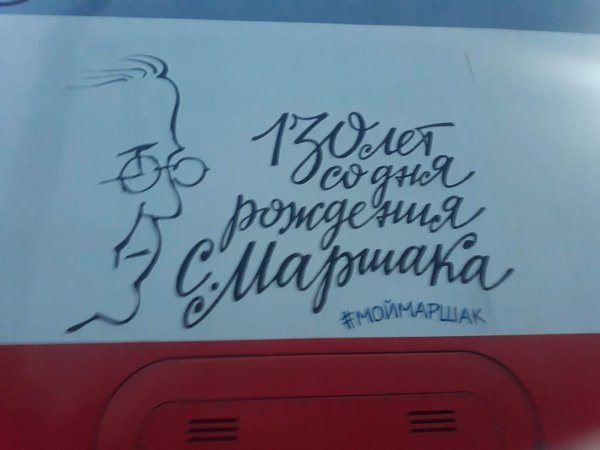 130 лет
со дня
рождения
С. Маршака
#МОЙМАРШАК